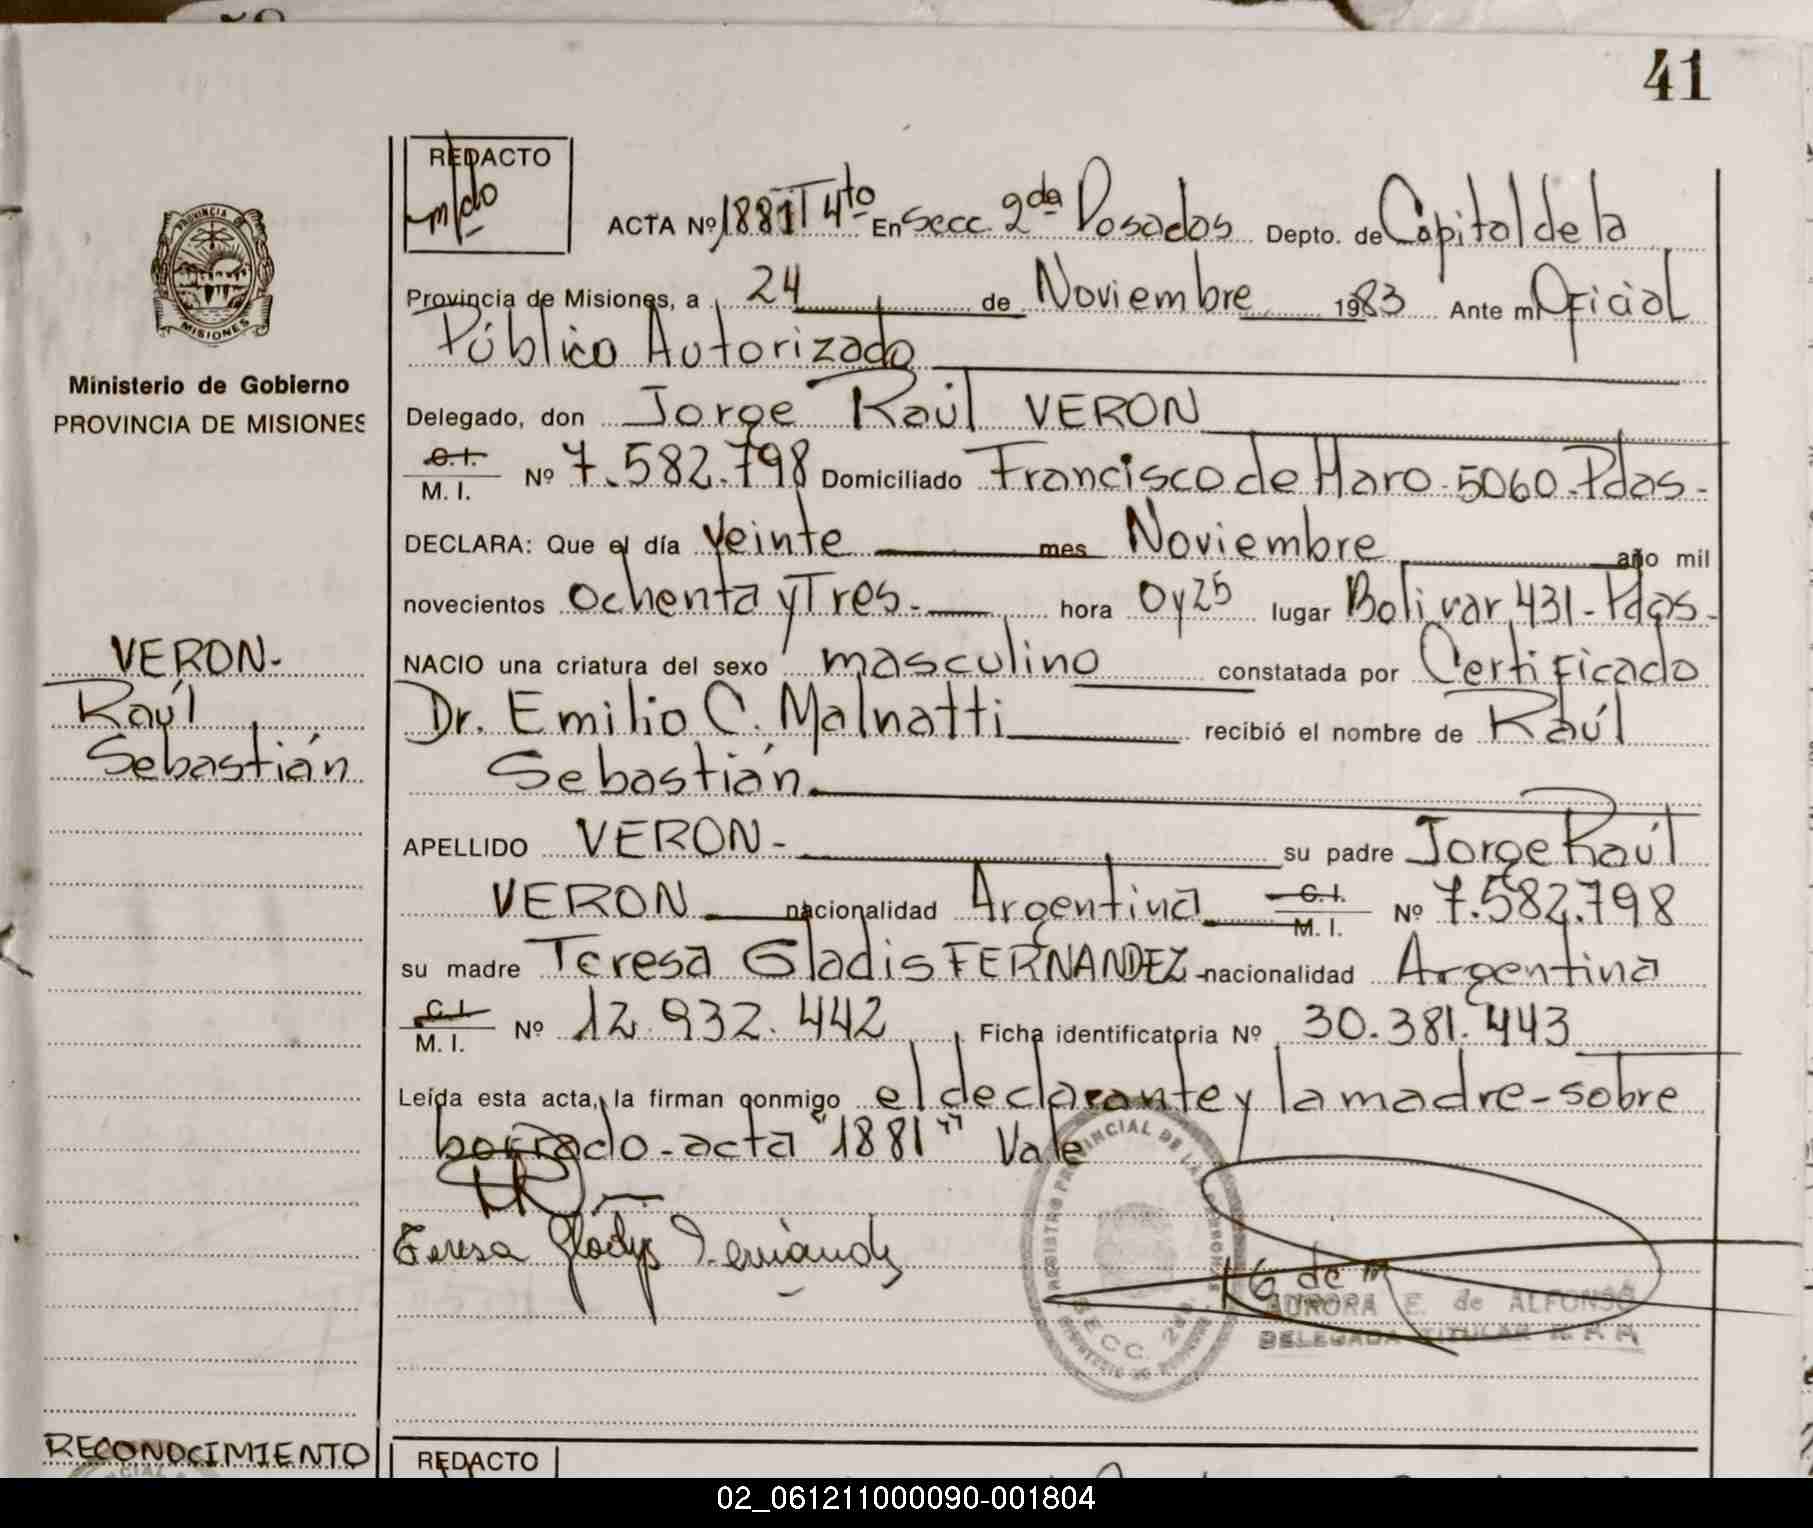 41
REDACTO
ACTA Nº 1881 T 4to En Secc. 2da Posadas Depto. de Capital de la
Provincia de Misiones, a 24 de Noviembre 1983 Ante mi Oficial
Público Autorizado
Delegado, don Jorge Raúl VERON
C.I. M.I. Nº 7.582.798 Domiciliado Francisco de Haro - 5060 - Pdas -
DECLARA: Que el día Veinte mes Noviembre año mil
novecientos Ochenta y Tres. hora 0 y 25 lugar Bolivar 431 - Pdas -
NACIO una criatura del sexo masculino constatada por Certificado
Dr. Emilio C. Malnatti recibió el nombre de Raúl
Sebastián.
APELLIDO VERON - su padre Jorge Raúl
VERON nacionalidad Argentina C.I. M.I. Nº 7.582.798
su madre Teresa Gladis FERNANDEZ - nacionalidad Argentina
C.I. M.I. Nº 12.932.442 Ficha identificatoria Nº 30.381.443
Leída esta acta, la firman conmigo el declarante y la madre - sobre
borrado - acta "1881" Vale
Teresa Gladys Fernández
AURORA E. de ALFONSO
DELEGADA TITULAR R. P. P.
SECC. 2da.
PROVINCIA DE
MISIONES
Ministerio de Gobierno
PROVINCIA DE MISIONES
VERON -
Raúl
Sebastián
RECONOCIMIENTO
REDACTO
02_061211000090-001804